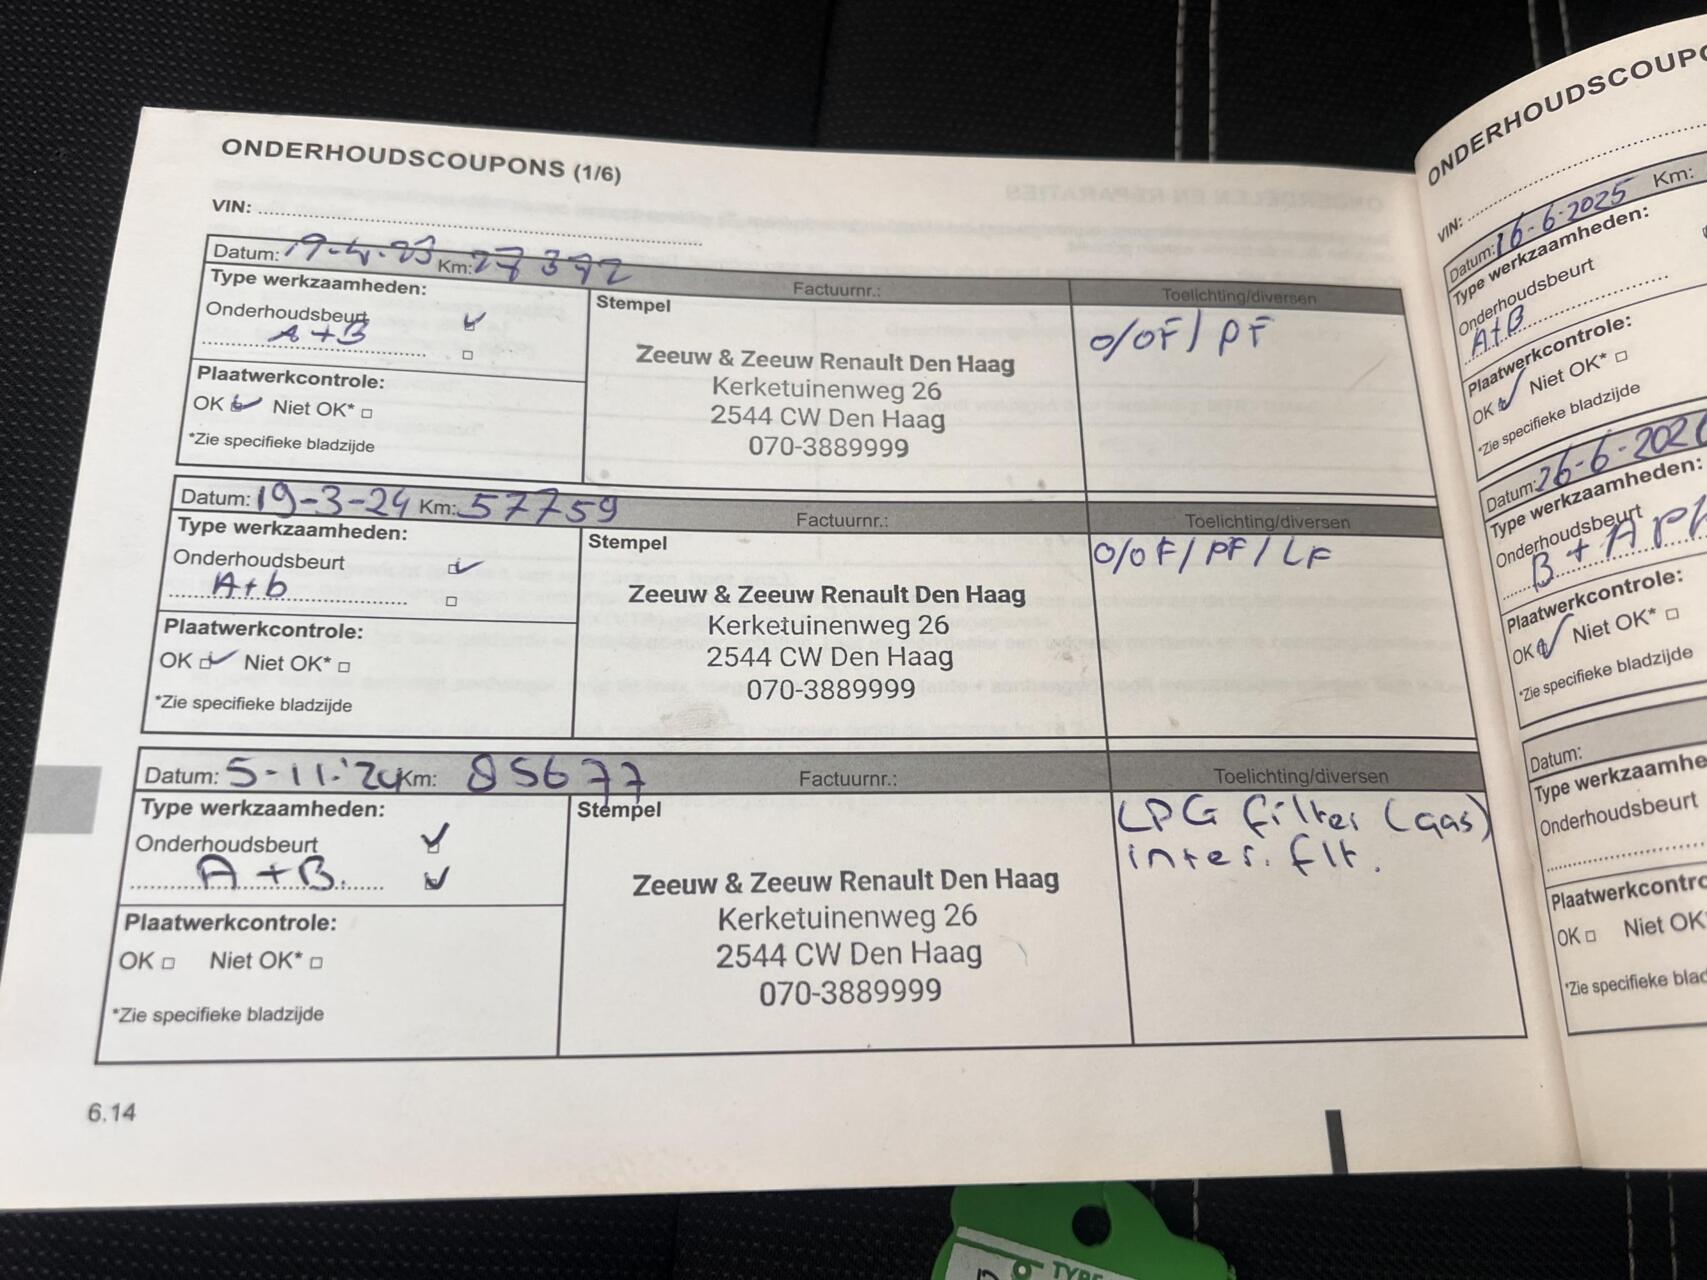 ONDERHOUDSCOUPONS (1/6)
VIN:
Datum: 19-4-23 Km: 27372
Factuurnr.:
Toelichting/diversen
Type werkzaamheden:
Onderhoudsbeurt
A+B
Plaatwerkcontrole:
OK Niet OK*
*Zie specifieke bladzijde
Stempel
Zeeuw & Zeeuw Renault Den Haag
Kerketuinenweg 26
2544 CW Den Haag
070-3889999
O/OF/ PF
Datum: 19-3-24 Km: 57759
Factuurnr.:
Toelichting/diversen
Type werkzaamheden:
Onderhoudsbeurt
A+b
Plaatwerkcontrole:
OK Niet OK*
*Zie specifieke bladzijde
Stempel
Zeeuw & Zeeuw Renault Den Haag
Kerketuinenweg 26
2544 CW Den Haag
070-3889999
O/OF/PF/LF
Datum: 5-11-'24 Km: 85677
Factuurnr.:
Toelichting/diversen
Type werkzaamheden:
Onderhoudsbeurt
A+B.
Plaatwerkcontrole:
OK Niet OK*
*Zie specifieke bladzijde
Stempel
Zeeuw & Zeeuw Renault Den Haag
Kerketuinenweg 26
2544 CW Den Haag
070-3889999
LPG filter (gas)
inter. flt.
6.14
ONDERHOUDSCOUPO
VIN:
Datum: 16-6-2025 Km:
Type werkzaamheden:
Onderhoudsbeurt
A+B
Plaatwerkcontrole:
OK Niet OK*
*Zie specifieke bladzijde
Datum: 26-6-202
Type werkzaamheden:
Onderhoudsbeurt
B + A
Plaatwerkcontrole:
OK Niet OK*
*Zie specifieke bladzijde
Datum:
Type werkzaamhe
Onderhoudsbeurt
Plaatwerkcontro
OK Niet OK
*Zie specifieke blad
TYPE